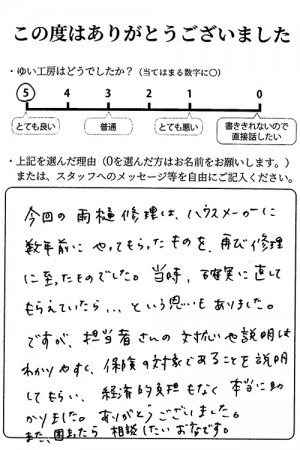 この度はありがとうございました
・ゆい工房はどうでしたか？（当てはまる数字に○）
5 4 3 2 1 0
とても良い 普通 とても悪い 書ききれないので
直接話したい
・上記を選んだ理由（0を選んだ方はお名前をお願いします。）
または、スタッフへのメッセージ等を自由にご記入ください。
今回の雨樋修理は、ハウスメーカーに
数年前にやってもらったものを、再び修理
に至ったものでした。当時、確実に直して
もらえていたら、、、という思いもありました。
ですが、担当者さんの対応や説明は
わかりやすく、保険の対象であることを説明
してもらい、経済的負担もなく本当に助
かりました。ありがとうございました。
また、困ったら相談したいおなです。